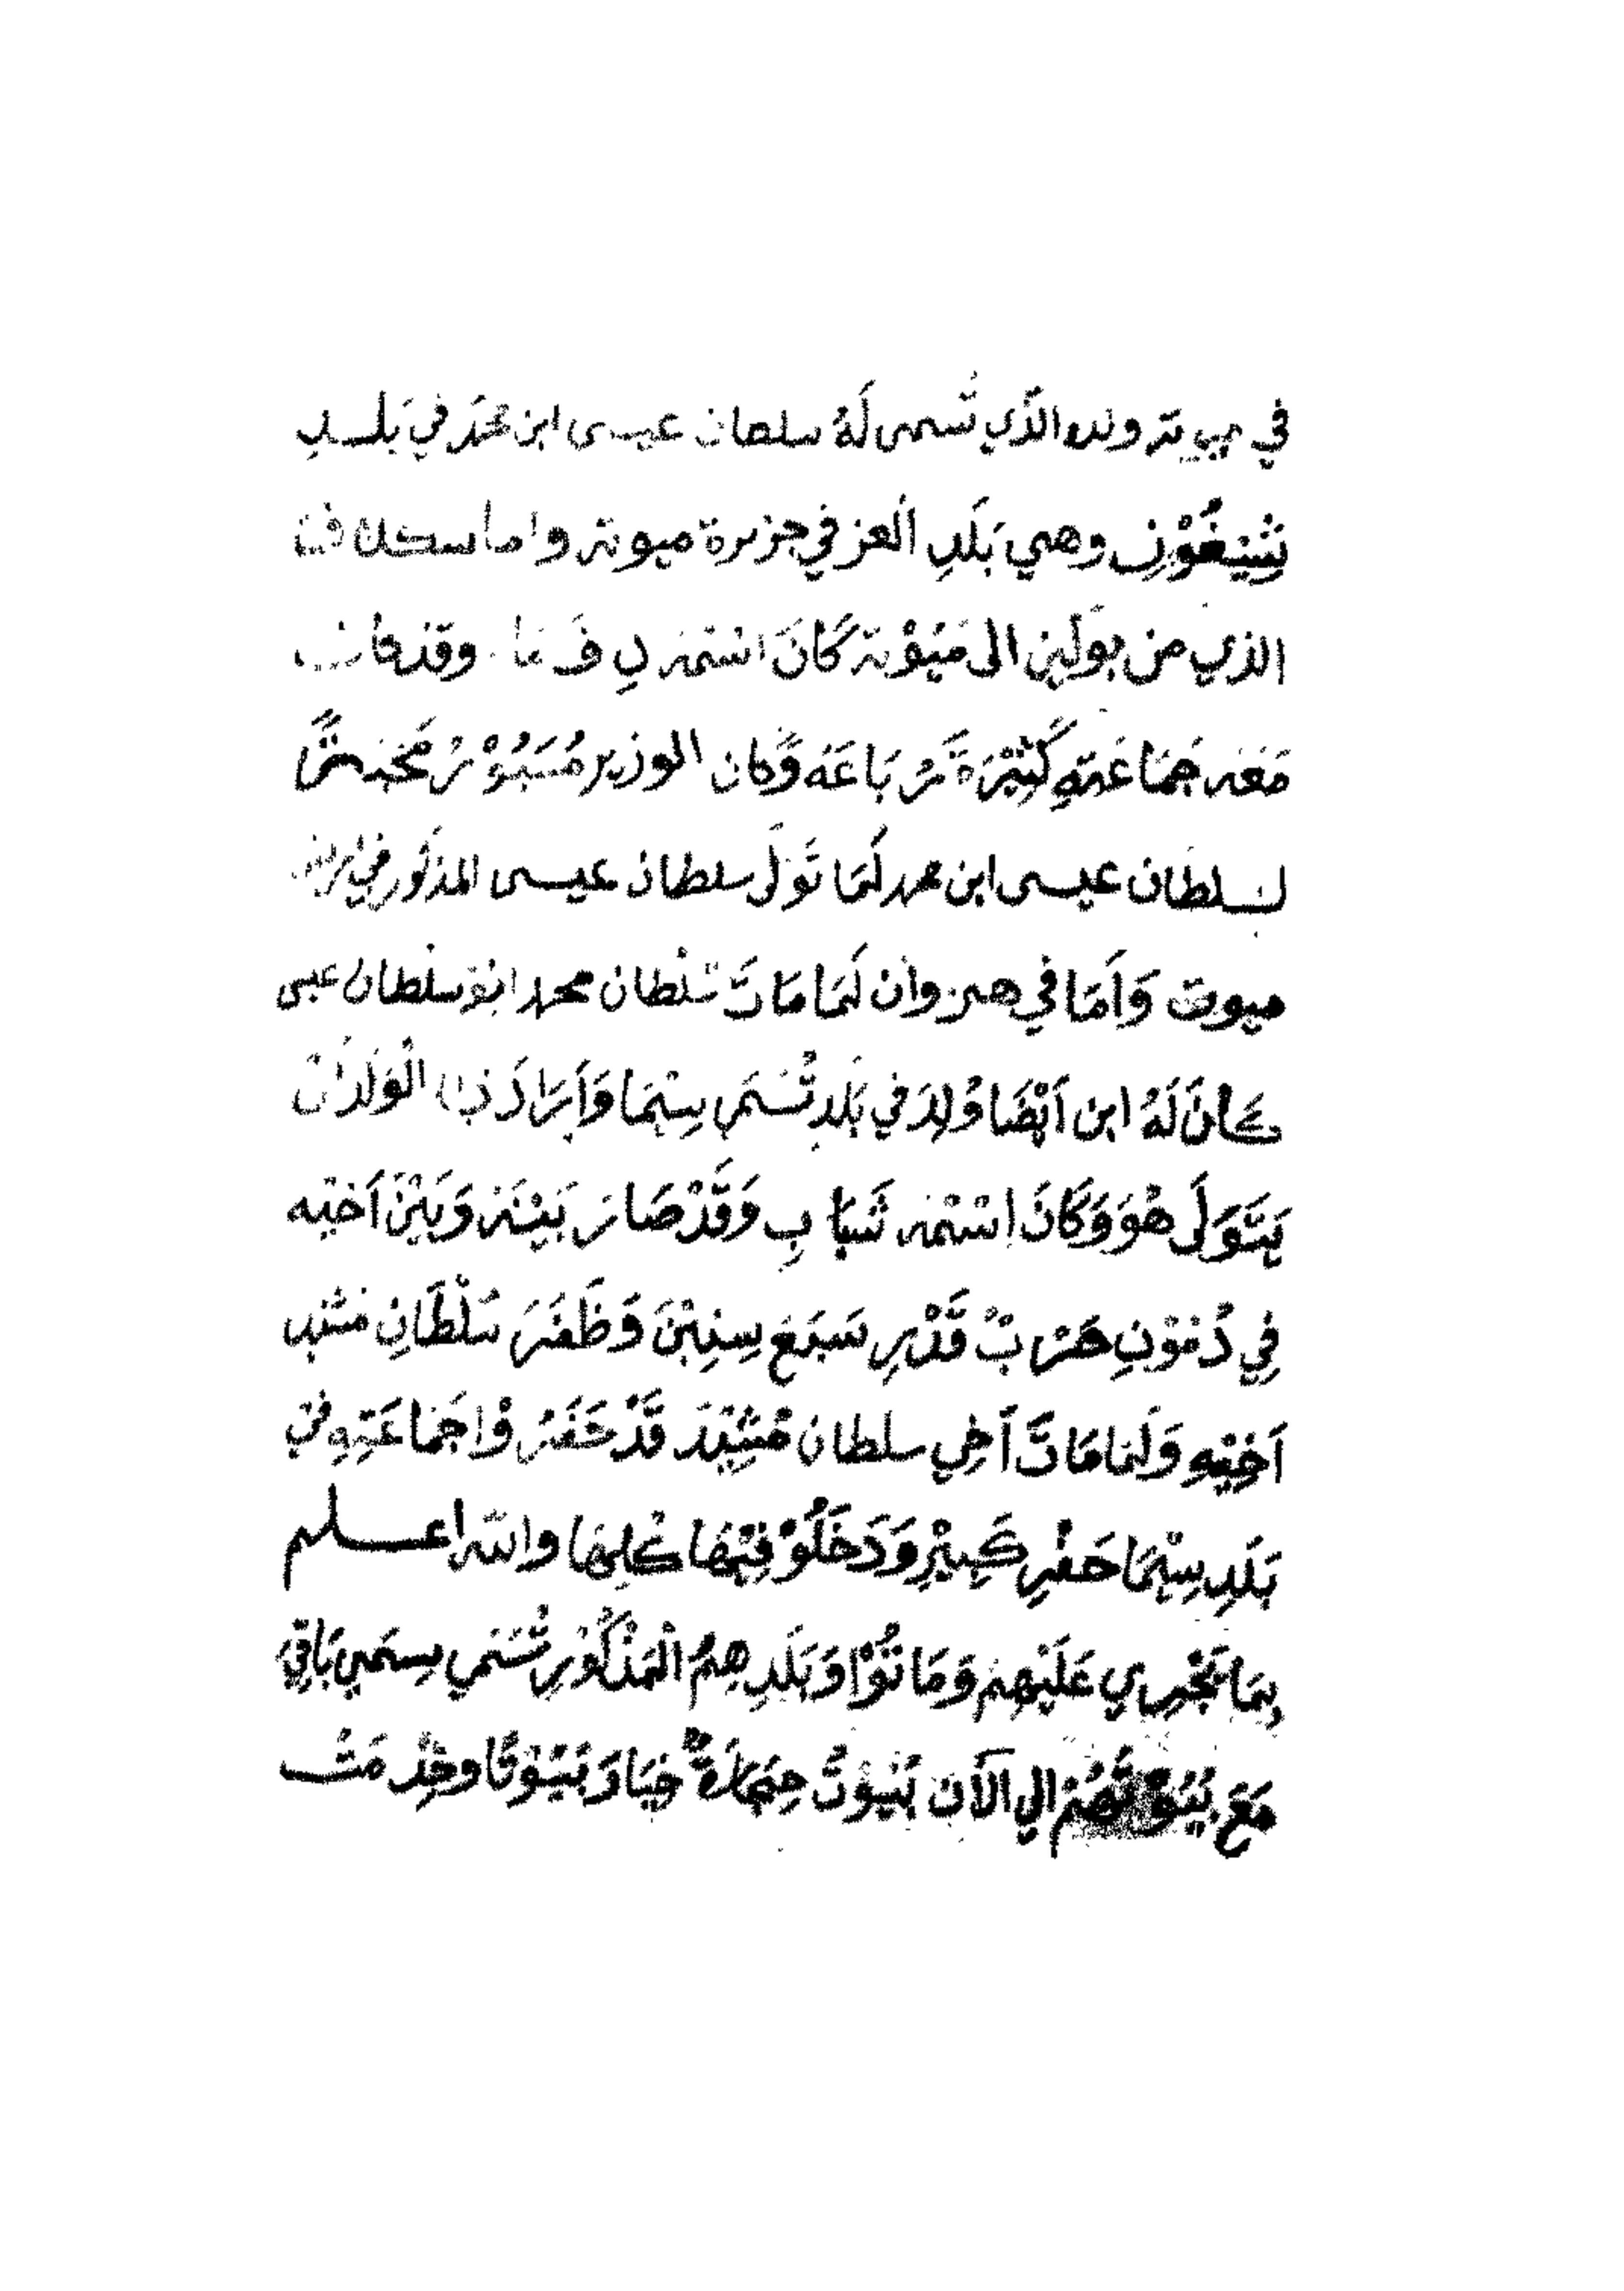 في ميوتة ولده الذي تُسمى لَهُ سلطان عيسى ابن محمد في بَلَدِ
تِثِينْغُوْنِ وهي بَلَدِ العز في جزيرة ميوتة واما
الذي من بوَلَينِ الى مَيُوْتة كَانَ اسْمُهُ وقد كان
مَعَهُ جَمَاعَتِهِ كَثِيْرَةً مُرْبَاعَهْ وَكان الوزير
لسلطان عيسى ابن محمد لَمَا تَوَلَى سلطان عيسى المذكور في
ميوت وَاَمَا في هنزوان لَمَا مَاتَ سُلْطان محمد ابنُ سُلطان عيسى
كَانَ لَهُ ابن اَيْضَا وُلِدَ في بَلَدِ تُسَمَى سِيْمَا وَاَرَادَ الْوَلَد اَن
يَتَوَلَى هُوَ وَكَانَ اِسْمُهُ وَقَدْ صَارَ بَيْنَهُ وَبَيْنَ اَختِه
فِي دُمُوْنِ حَرْبٌ قَدْرِ سَبْعَ سِنِيْنَ وَظَفَرَ سُلْطَانِ
اَخِيْهِ وَلَمَا مَاتَ اَخِي سلطان قَدْ حَفَرُوْا جَمَاعَتِهِ في
بَلَدِ سِيْمَا حَفْرِ كَبِيْرِ وَدَخَلُوْ فِيْهَا كُلِهَا والله اعلم
بِمَا يَجْرِي عَلَيْهِمْ وَمَاتُوْا وَبَلَدِهِمُ الْمَذْكُوْرِ تُسَمَى بَاقِيَ
مَعَ بُيُوْتِهُمْ الي الاَن بُيُوْتُ حِجَارَةٌ